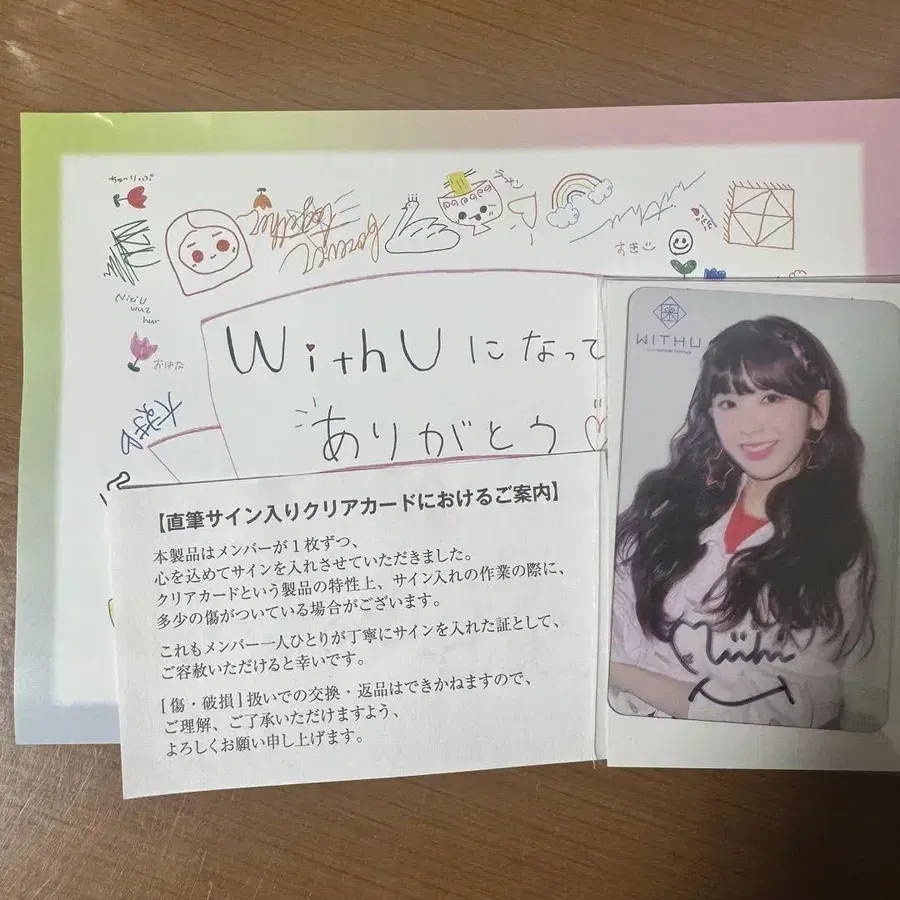 ちゅーりっぷ
ラーメン
together
forever
すき
NiziU
おはな
大好き
WithU になって
ありがとう
WITHU
【直筆サイン入りクリアカードにおけるご案内】
本製品はメンバーが1枚ずつ、
心を込めてサインを入れさせていただきました。
クリアカードという製品の特性上、サイン入れの作業の際に、
多少の傷がついている場合がございます。
これもメンバー一人ひとりが丁寧にサインを入れた証として、
ご容赦いただけると幸いです。
[傷・破損]扱いでの交換・返品はできかねますので、
ご理解、ご了承いただけますよう、
よろしくお願い申し上げます。
Miihi